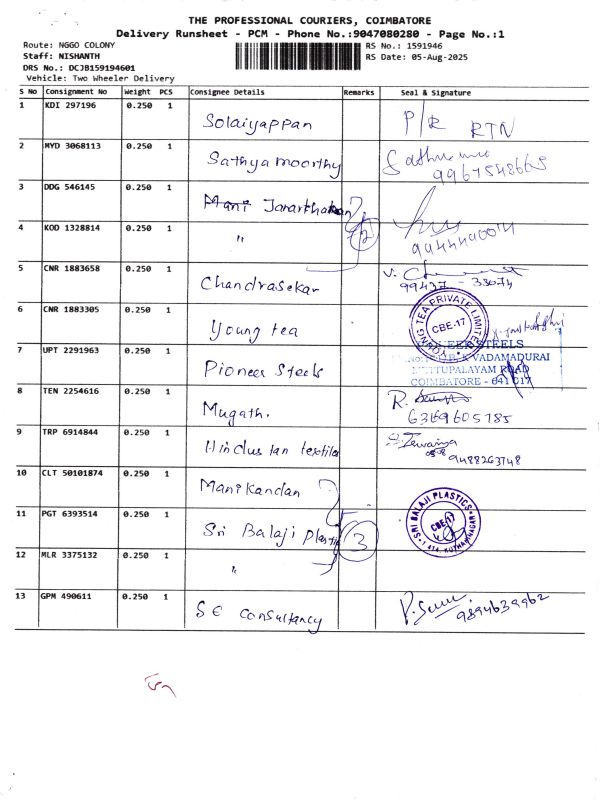 THE PROFESSIONAL COURIERS, COIMBATORE
Delivery Runsheet - PCM - Phone No.:9047080280 - Page No.:1
Route: NGGO COLONY
RS No.: 1591946
Staff: NISHANTH
RS Date: 05-Aug-2025
DRS No.: DCJB159194601
Vehicle: Two Wheeler Delivery
S No Consignment No Weight PCS Consignee Details Remarks Seal & Signature
1 KDI 297196 0.250 1 Solaiyappan P/R RTN
2 MYD 3068113 0.250 1 Sathya moorthy 9967548665
3 DDG 546145 0.250 1 Mani Janarthanan
4 KOD 1328814 0.250 1 " 2
5 CNR 1883658 0.250 1 Chandrasekar 99437 - 33074
6 CNR 1883305 0.250 1 Young tea YOUNG TEA PRIVATE LIMITED CBE-17
7 UPT 2291963 0.250 1 Pioneer Steels STEELS
VADAMADURAI
METTUPALAYAM ROAD
COIMBATORE - 641 017
8 TEN 2254616 0.250 1 Mugath. 6369605785
9 TRP 6914844 0.250 1 Hindustan textiles 9488263748
10 CLT 50101874 0.250 1 Manikandan
11 PGT 6393514 0.250 1 Sri Balaji Plastic 3 SRI BALAJI PLASTICS CBE-17
12 MLR 3375132 0.250 1 "
13 GPM 490611 0.250 1 SE Consultancy 9894639962